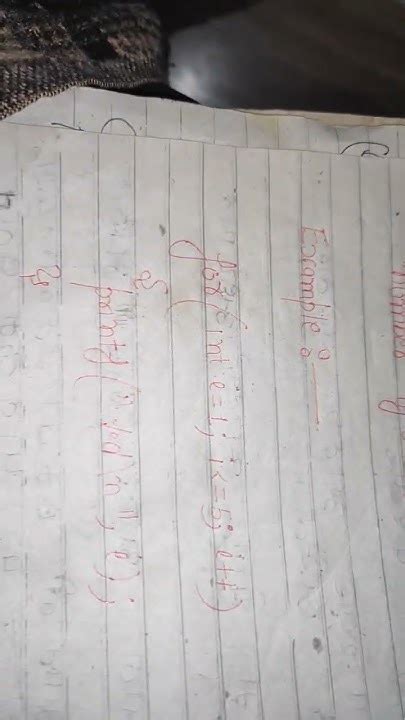 Example :-
for( int i=1; i<=5; i++)
{
printf("%d\n", i);
}